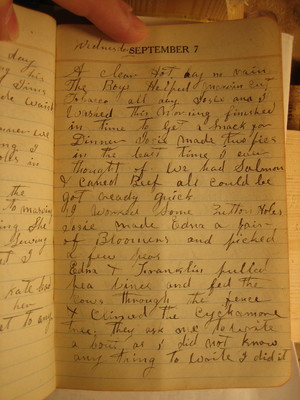 day
his
Wednesday
SEPTEMBER 7
A clear Hot day no rain
The Boys Helped Marvin cut
Tobaco all day Josie and I
Washed this Morning finished
in time to get a Snack for
Dinner Josie Made two pies
in the least time I ever
thought of We had Salmon
& Caned Beef all could be
got ready quick
I Worked Some Button Holes
Josie made Edna a pair
of Bloomers and picked
a few Peas
Edna & Franklin pulled
pea Vines and fed the
Cows through the fence
& climed the Cyckamore
tree they ask me to write
a bout as I did not know
any thing to write I did it
the
to Marvin
She
Sewing
I
Kate
her
at to any